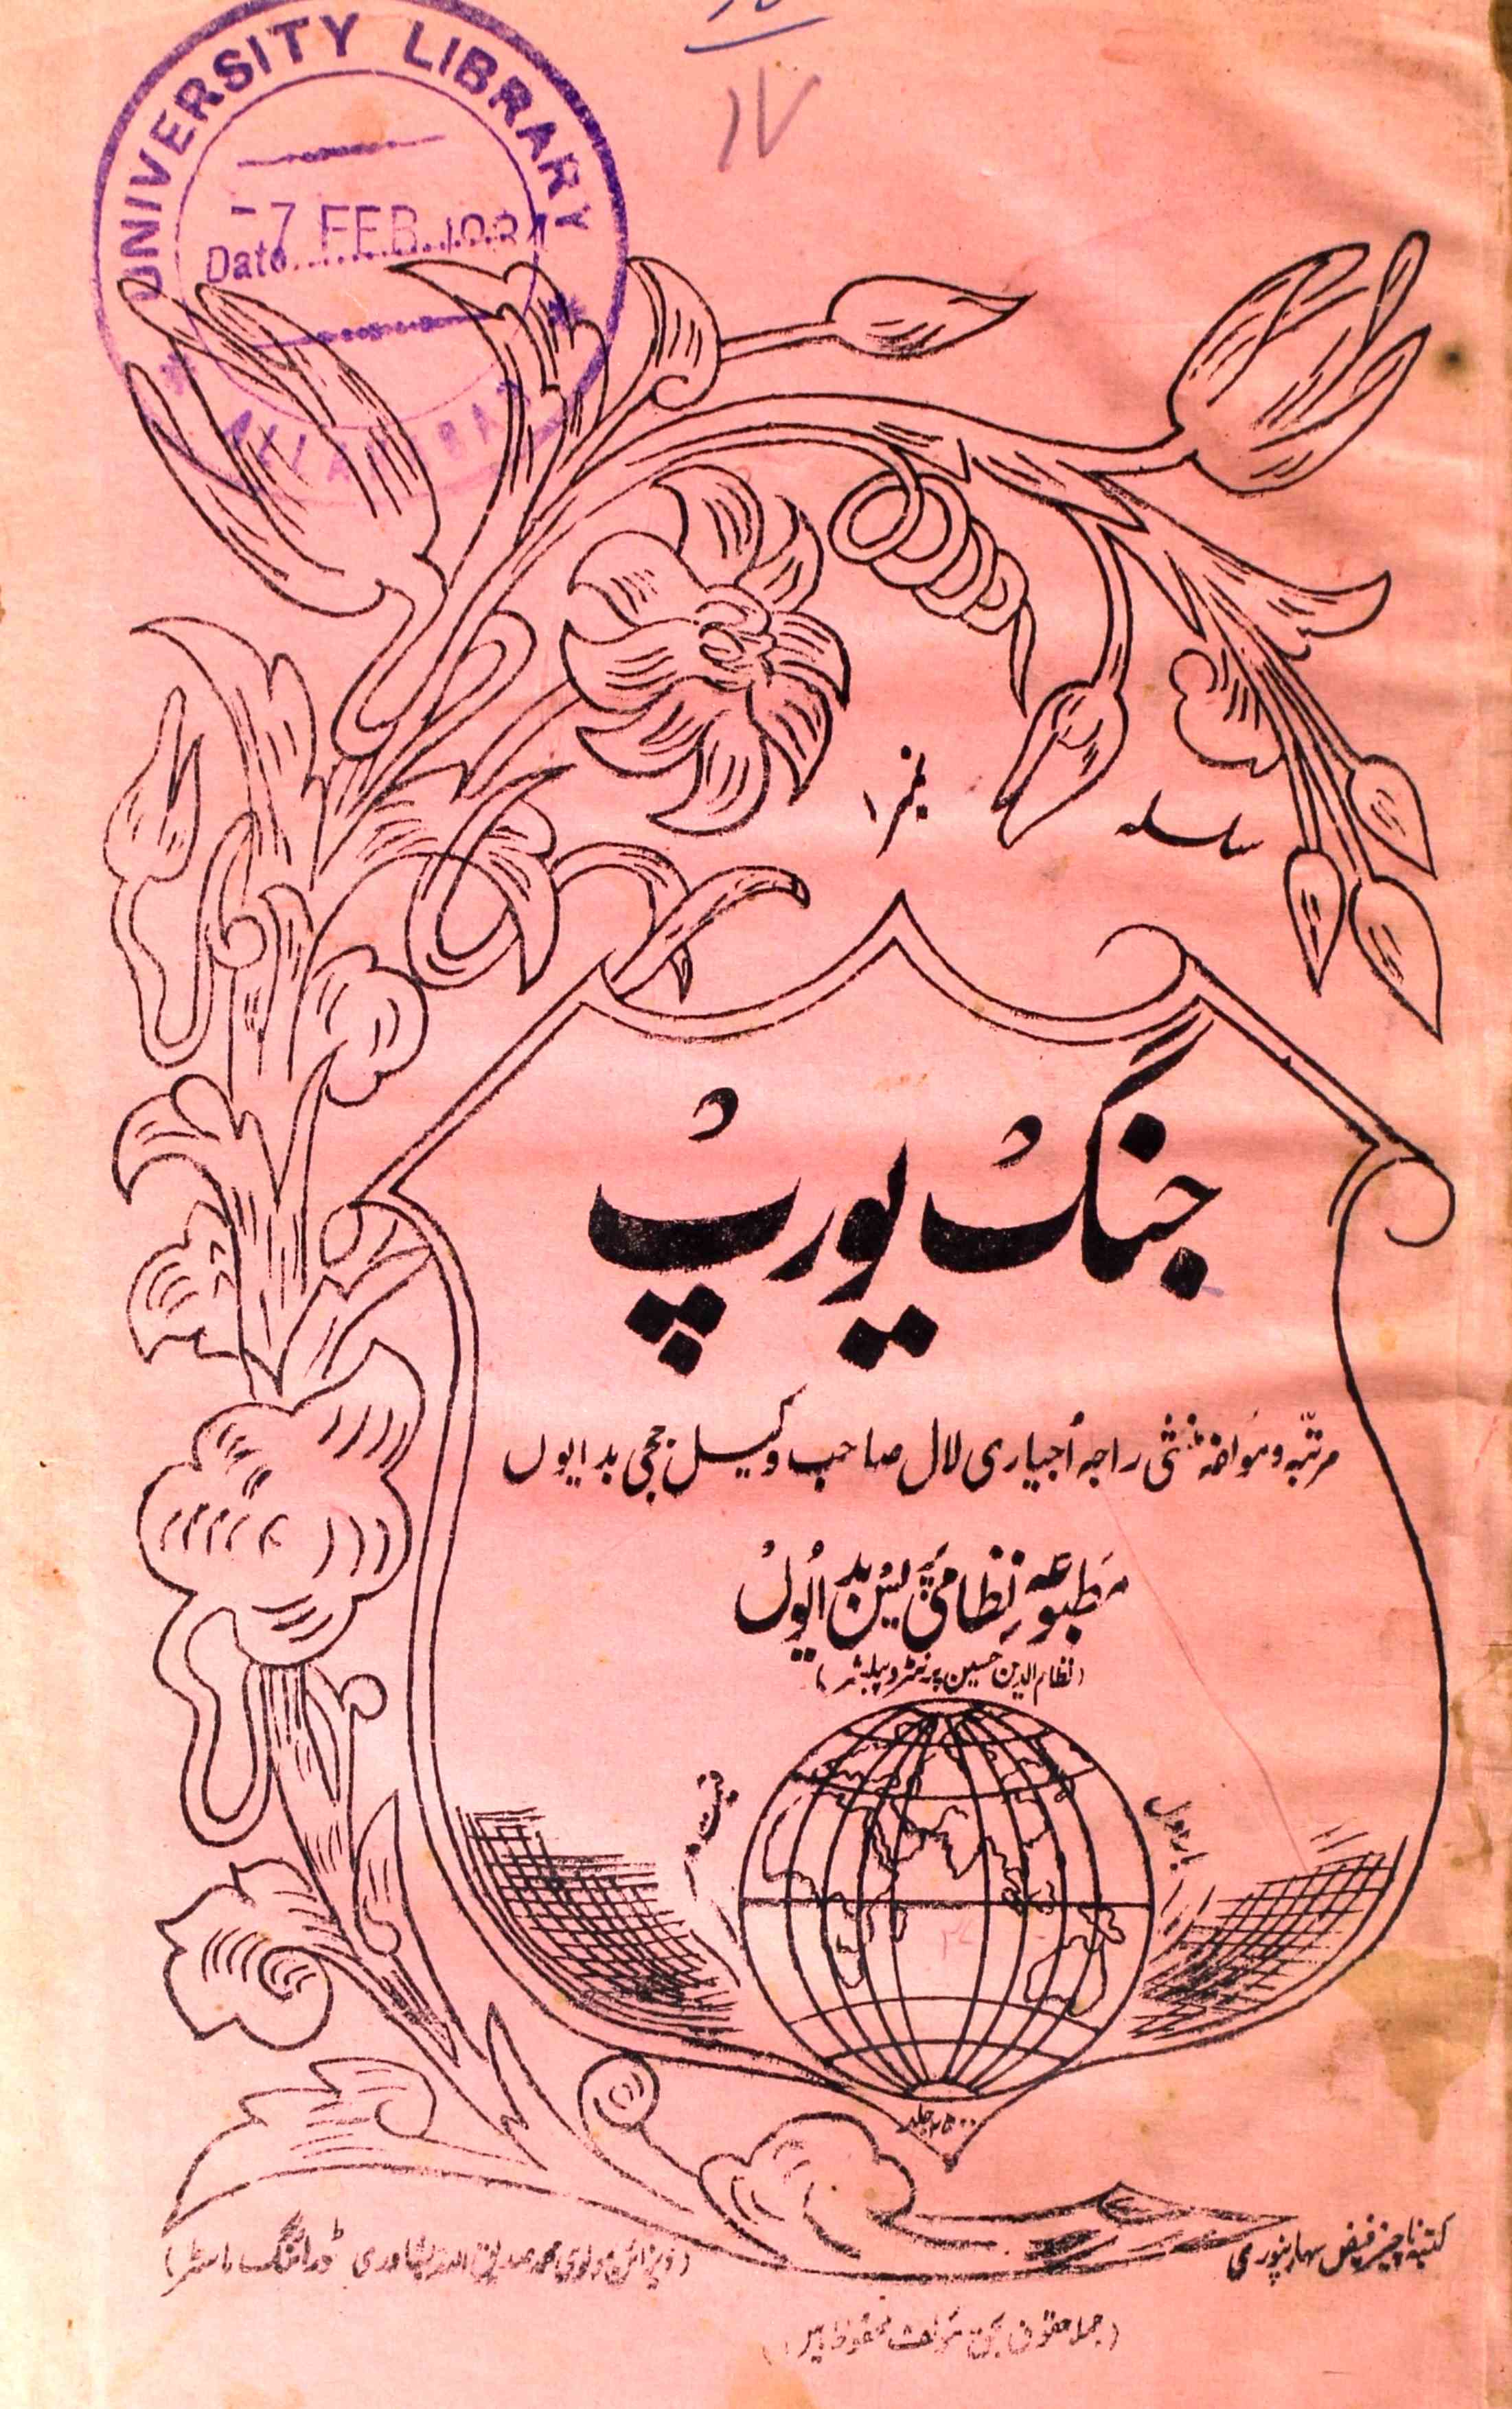 UNIVERSITY LIBRARY
-7 FEB
Date
ALLAHABAD
۱۷
سلسلہ نمبر ۱
جنگ یورپ
مرتبہ و مؤلفہ منشی راجہ اُجیاری لال صاحب وکیل ججی بدایوں
مطبوعہ نظامی پریس بدایوں
(نظام الدین حسین پرنٹر و پبلشر)
بار اول
قیمت
۵۰۰ جلد
کتبہ ناچیز فیض سہارنپوری
ڈرائنگ ماسٹر)
(جملہ حقوق بحق مؤلف محفوظ ہیں)